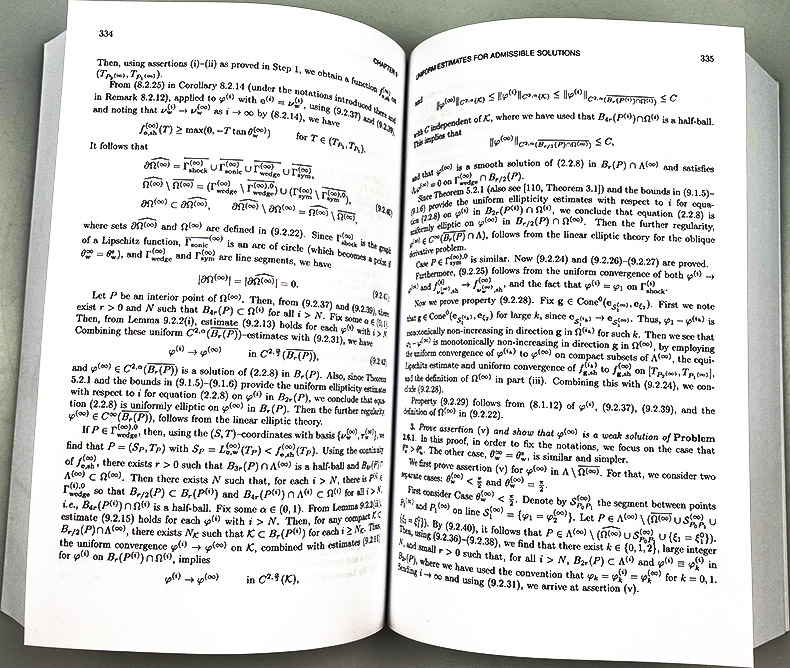 334
CHAPTER 9
Then, using assertions (i)-(ii) as proved in Step 1, we obtain a function f_{e,sh}^{(∞)} on
(T_{P_2^{(∞)}}, T_{P_1^{(∞)}}).
From (8.2.25) in Corollary 8.2.14 (under the notations introduced there and
in Remark 8.2.12), applied to φ^{(i)} with e^{(i)} = ν_w^{(i)}, using (9.2.37) and (9.2.39),
and noting that ν_w^{(i)} → ν_w^{(∞)} as i → ∞ by (8.2.14), we have
f_{e,sh}^{(∞)}(T) ≥ max(0, −T tan θ_w^{(∞)}) for T ∈ (T_{P_2}, T_{P_1}).
It follows that
∂Ω̂^{(∞)} = Γ_{shock}^{(∞)} ∪ Γ_{sonic}^{(∞)} ∪ Γ_{wedge}^{(∞)} ∪ Γ_{sym}^{(∞)},
Ω̂^{(∞)} \ Ω^{(∞)} = (Γ_{wedge}^{(∞)} \ Γ_{wedge}^{(∞),0}) ∪ (Γ_{sym}^{(∞)} \ Γ_{sym}^{(∞),0}),
∂Ω^{(∞)} ⊂ ∂Ω̂^{(∞)}, ∂Ω̂^{(∞)} \ ∂Ω^{(∞)} = Ω̂^{(∞)} \ Ω^{(∞)},
where sets ∂Ω̂^{(∞)} and Ω^{(∞)} are defined in (9.2.22). Since Γ_{shock}^{(∞)} is the graph
of a Lipschitz function, Γ_{sonic}^{(∞)} is an arc of circle (which becomes a point if
θ_w^{(∞)} = θ_w^{*}), and Γ_{wedge}^{(∞)} and Γ_{sym}^{(∞)} are line segments, we have
|∂Ω^{(∞)}| = |∂Ω̂^{(∞)}| = 0.
Let P be an interior point of Ω^{(∞)}. Then, from (9.2.37) and (9.2.39), there
exist r > 0 and N such that B_{4r}(P) ⊂ Ω^{(i)} for all i > N. Fix some α ∈ (0, 1).
Then, from Lemma 9.2.2(i), estimate (9.2.13) holds for each φ^{(i)} with i > N.
Combining these uniform C^{2,α}(B_r(P))-estimates with (9.2.31), we have
φ^{(i)} → φ^{(∞)} in C^{2,α/2}(B_r(P)),
and φ^{(∞)} ∈ C^{2,α}(B_r(P)) is a solution of (2.2.8) in B_r(P). Also, since Theorem
5.2.1 and the bounds in (9.1.5)-(9.1.6) provide the uniform ellipticity estimates
with respect to i for equation (2.2.8) on φ^{(i)} in B_{2r}(P), we conclude that equa-
tion (2.2.8) is uniformly elliptic on φ^{(∞)} in B_r(P). Then the further regularity,
φ^{(∞)} ∈ C^∞(B_r(P)), follows from the linear elliptic theory.
If P ∈ Γ_{wedge}^{(∞),0}, then, using the (S, T)-coordinates with basis {ν_w^{(∞)}, τ_w^{(∞)}}, we
find that P = (S_P, T_P) with S_P = L_{0,w}^{(∞)}(T_P) < f_{e,sh}^{(∞)}(T_P). Using the continuity
of f_{e,sh}^{(∞)}, there exists r > 0 such that B_{3r}(P) ∩ Λ^{(∞)} is a half-ball and B_{3r}(P) ∩
Λ^{(∞)} ⊂ Ω^{(∞)}. Then there exists N such that, for each i > N, there is P^{(i)} ∈
Γ_{wedge}^{(i),0} so that B_{r/2}(P) ⊂ B_r(P^{(i)}) and B_{4r}(P^{(i)}) ∩ Λ^{(i)} ⊂ Ω^{(i)} for all i > N,
i.e., B_{4r}(P^{(i)}) ∩ Ω^{(i)} is a half-ball. Fix some α ∈ (0, 1). From Lemma 9.2.2(ii),
estimate (9.2.15) holds for each φ^{(i)} with i > N. Then, for any compact K ⊂
B_{r/2}(P) ∩ Λ^{(∞)}, there exists N_K such that K ⊂ B_r(P^{(i)}) for each i ≥ N_K. Thus,
the uniform convergence φ^{(i)} → φ^{(∞)} on K, combined with estimates (9.2.15)
for φ^{(i)} on B_r(P^{(i)}) ∩ Ω^{(i)}, implies
φ^{(i)} → φ^{(∞)} in C^{2,α/2}(K),
UNIFORM ESTIMATES FOR ADMISSIBLE SOLUTIONS
335
and
‖φ^{(∞)}‖_{C^{2,α}(K)} ≤ ‖φ^{(i)}‖_{C^{2,α}(K)} ≤ ‖φ^{(i)}‖_{C^{2,α}(B_r(P^{(i)})∩Ω^{(i)})} ≤ C
with C independent of K, where we have used that B_{4r}(P^{(i)}) ∩ Ω^{(i)} is a half-ball.
This implies that
‖φ^{(∞)}‖_{C^{2,α}(B_{r/2}(P)∩Ω^{(∞)})} ≤ C,
and that φ^{(∞)} is a smooth solution of (2.2.8) in B_r(P) ∩ Λ^{(∞)} and satisfies
= 0 on Γ_{wedge}^{(∞)} ∩ B_{r/2}(P).
Since Theorem 5.2.1 (also see [110, Theorem 3.1]) and the bounds in (9.1.5)-
(9.1.6) provide the uniform ellipticity estimates with respect to i for equa-
tion (2.2.8) on φ^{(i)} in B_{2r}(P^{(i)}) ∩ Ω^{(i)}, we conclude that equation (2.2.8) is
uniformly elliptic on φ^{(∞)} in B_{r/2}(P) ∩ Ω^{(∞)}. Then the further regularity,
φ^{(∞)} ∈ C^∞(B_r(P) ∩ Λ), follows from the linear elliptic theory for the oblique
derivative problem.
Case P ∈ Γ_{sym}^{(∞),0} is similar. Now (9.2.24) and (9.2.26)-(9.2.27) are proved.
Furthermore, (9.2.25) follows from the uniform convergence of both φ^{(i)} →
φ^{(∞)} and f → f, and the fact that φ^{(i)} = φ_1 on Γ_{shock}^{(i)}.
Now we prove property (9.2.28). Fix g ∈ Cone^0(e_{S_1^{(∞)}}, e_{ξ_2}). First we note
that g ∈ Cone^0(e_{S_1^{(i_k)}}, e_{ξ_2}) for large k, since e_{S_1^{(i_k)}} → e_{S_1^{(∞)}}. Thus, φ_1 − φ^{(i_k)} is
monotonically non-increasing in direction g in Ω^{(i_k)} for such k. Then we see that
φ_1 − φ^{(∞)} is monotonically non-increasing in direction g in Ω^{(∞)}, by employing
the uniform convergence of φ^{(i_k)} to φ^{(∞)} on compact subsets of Λ^{(∞)}, the equi-
Lipschitz estimate and uniform convergence of f_{g,sh}^{(i_k)} to f_{g,sh}^{(∞)} on [T_{P_2^{(∞)}}, T_{P_1^{(∞)}}],
and the definition of Ω^{(∞)} in part (iii). Combining this with (9.2.24), we con-
clude (9.2.28).
Property (9.2.29) follows from (8.1.12) of φ^{(i)}, (9.2.37), (9.2.39), and the
definition of Ω^{(∞)} in (9.2.22).
3. Prove assertion (v) and show that φ^{(∞)} is a weak solution of Problem
2.6.1. In this proof, in order to fix the notations, we focus on the case that
The other case, is similar and simpler.
We first prove assertion (v) for φ^{(∞)} in Λ \ Ω^{(∞)}. For that, we consider two
separate cases: θ_w^{(∞)} < π/2 and θ_w^{(∞)} = π/2.
First consider Case θ_w^{(∞)} < π/2. Denote by S_{P_0P_1}^{(∞)} the segment between points
P_0^{(∞)} and P_1^{(∞)} on line S_1^{(∞)} = {φ_1 = φ_2^{(∞)}}. Let P ∈ Λ^{(∞)} \ (Ω^{(∞)} ∪ S_{P_0P_1}^{(∞)} ∪
{ξ_1 = ξ_1^0}). By (9.2.40), it follows that P ∈ Λ^{(∞)} \ (Ω̂^{(∞)} ∪ S_{P_0P_1}^{(∞)} ∪ {ξ_1 = ξ_1^0}).
Then, using (9.2.36)-(9.2.38), we find that there exist k ∈ {0, 1, 2}, large integer
N, and small r > 0 such that, for all i > N, B_{2r}(P) ⊂ Λ^{(i)} and φ^{(i)} ≡ φ_k^{(i)} in
B_{2r}(P), where we have used the convention that φ_k = φ_k^{(i)} = φ_k^{(∞)} for k = 0, 1.
Sending i → ∞ and using (9.2.31), we arrive at assertion (v).